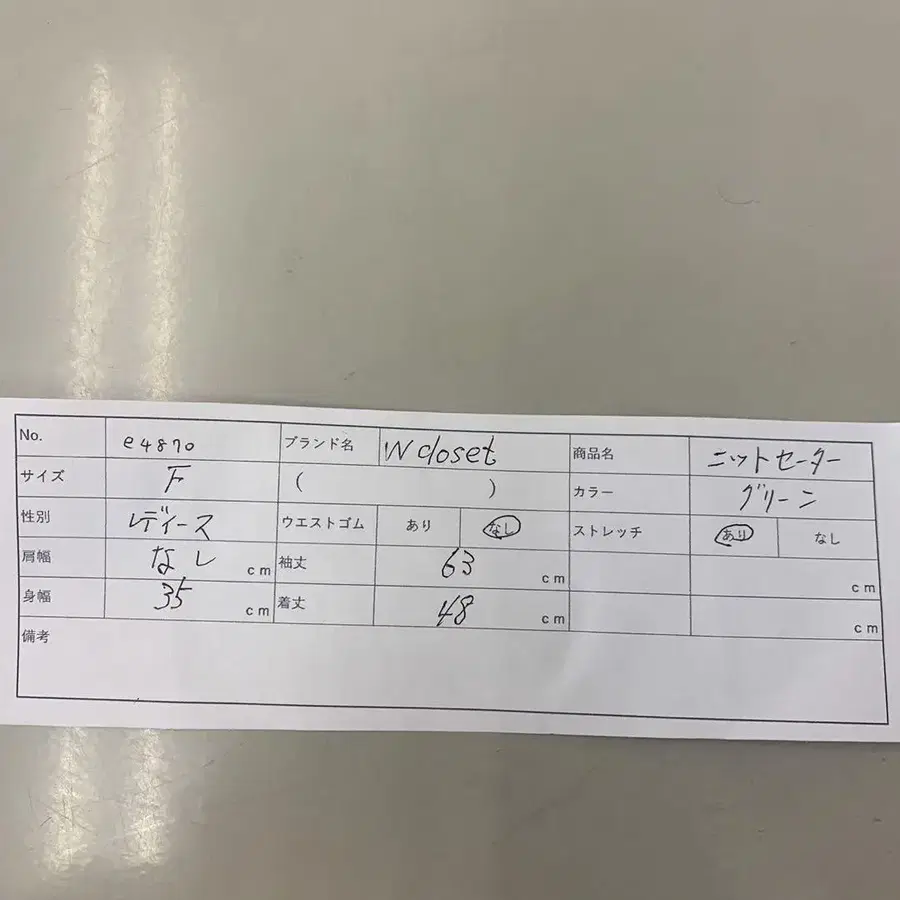 No. e4870 ブランド名 W closet 商品名 ニットセーター
サイズ F ( ) カラー グリーン
性別 レディース ウエストゴム あり なし ストレッチ あり なし
肩幅 なし cm 袖丈 63 cm cm
身幅 35 cm 着丈 48 cm cm
備考